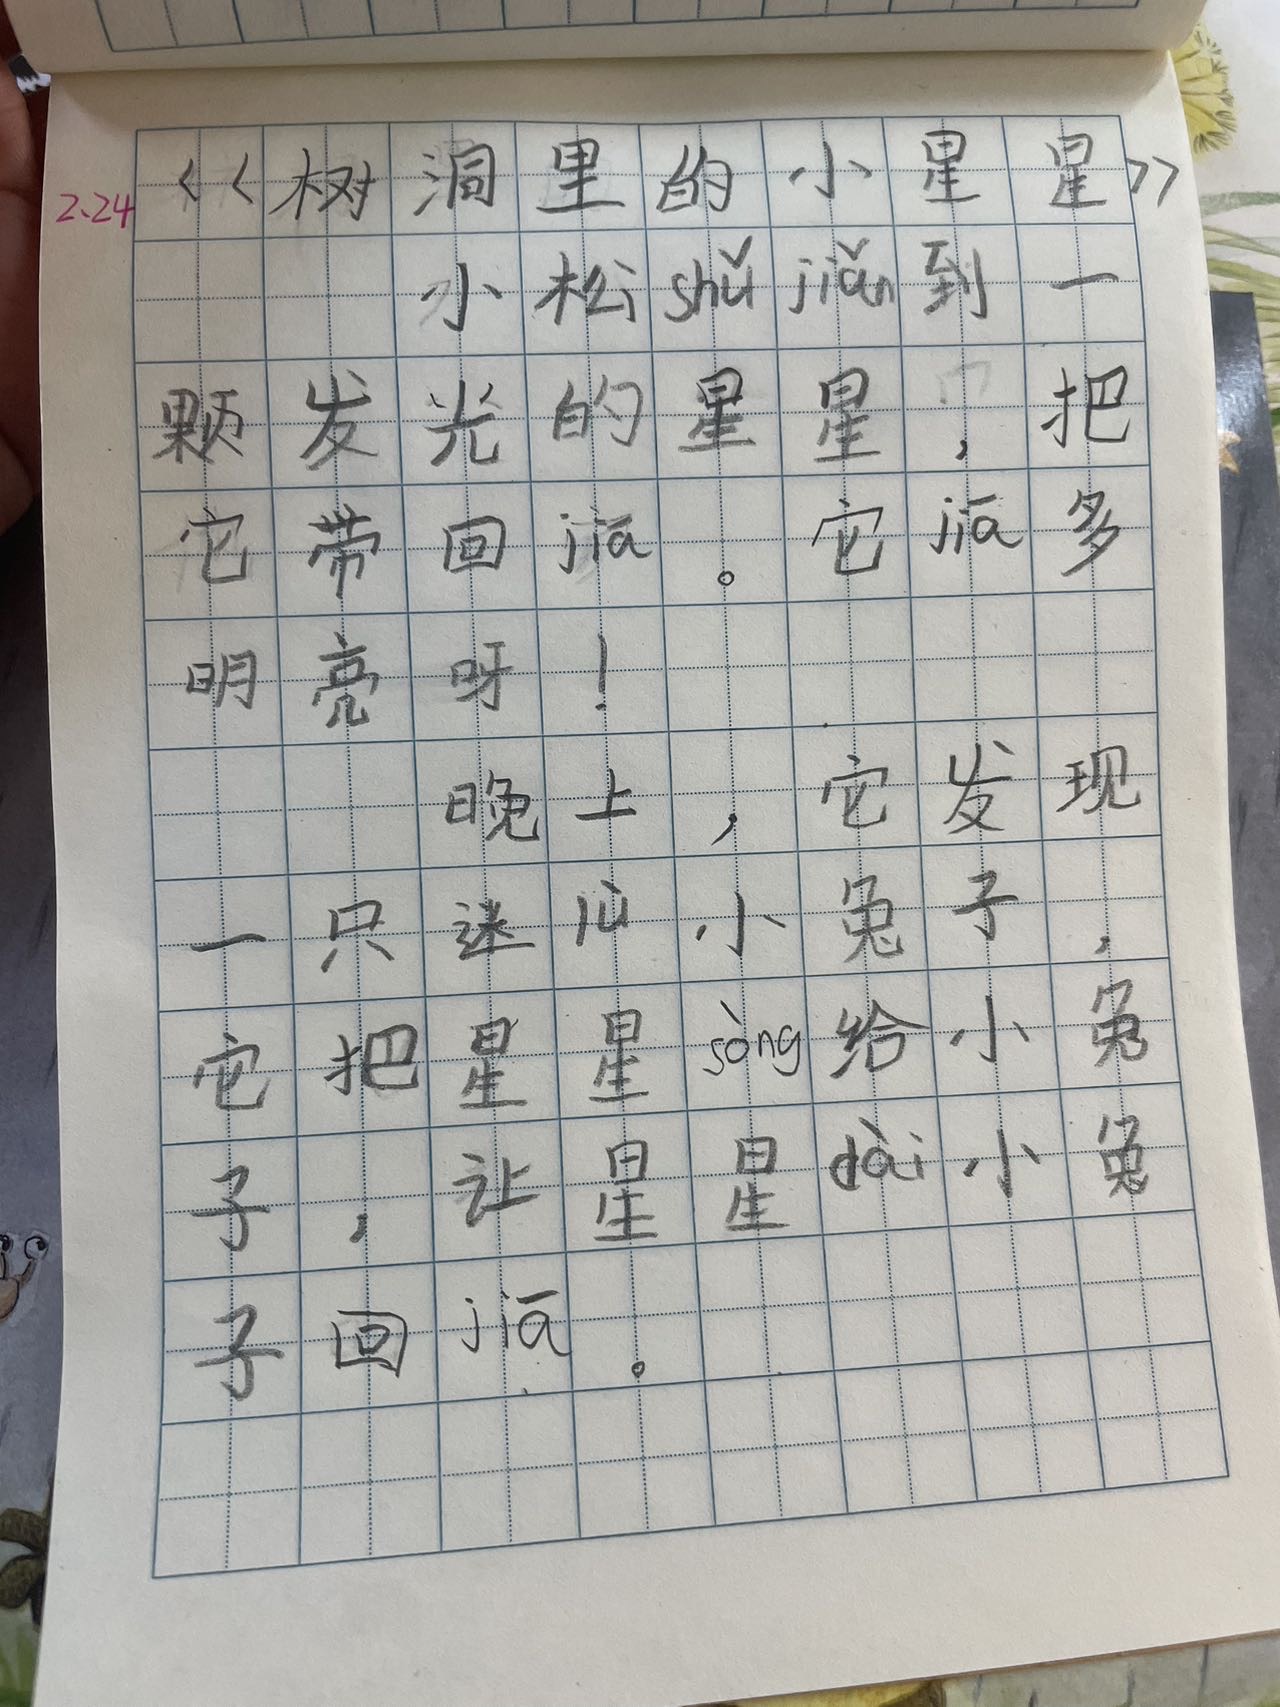 2.24
《树洞里的小星星》
小松shǔ jiǎn到一
颗发光的星星，把
它带回jiā。它jiā多
明亮呀！
晚上，它发现
一只迷lù小兔子，
它把星星sòng给小兔
子，让星星dài小兔
子回jiā。